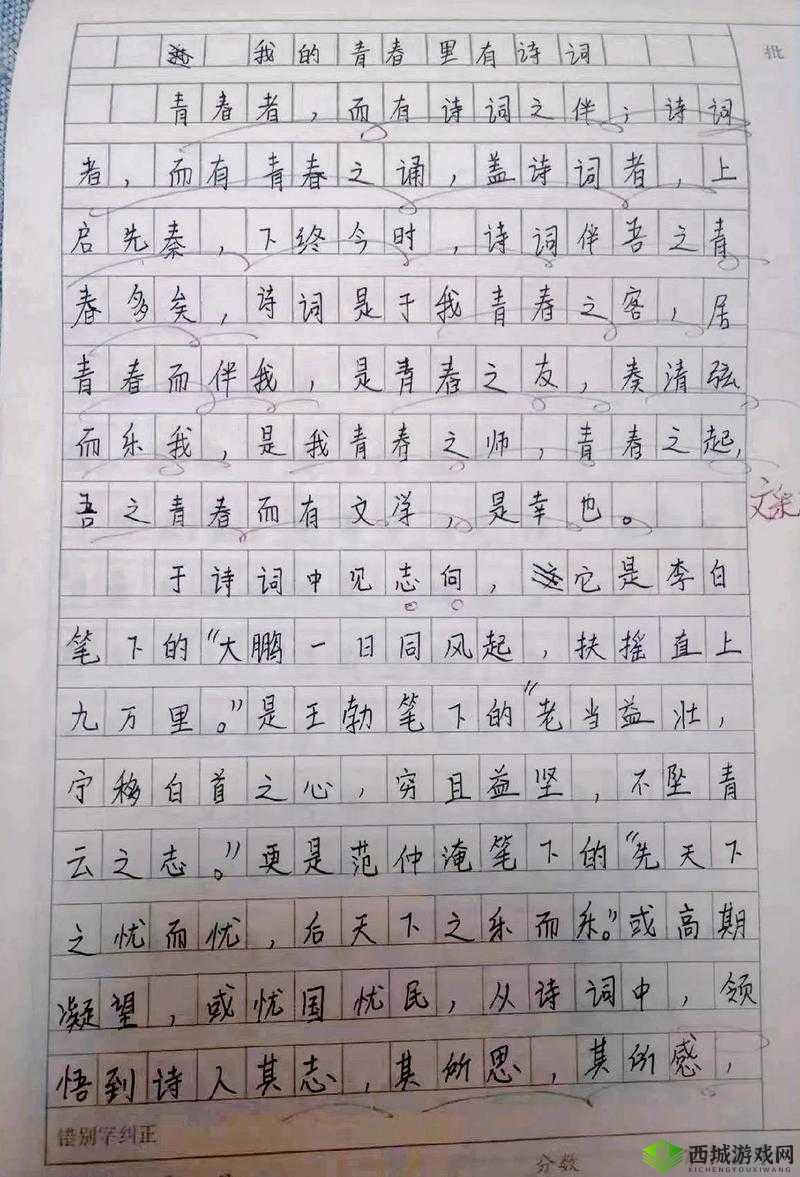 我的青春里有诗词
批
青春者，而有诗词之伴；诗词
者，而有青春之诵，盖诗词者，上
启先秦，下终今时，诗词伴吾之青
春多矣，诗词是于我青春之客，居
青春而伴我，是青春之友，奏清弦
而乐我，是我青春之师，青春之起，
吾之青春而有文学，是幸也。
文采
于诗词中见志向，它是李白
笔下的“大鹏一日同风起，扶摇直上
九万里。”是王勃笔下的“老当益壮，
宁移白首之心，穷且益坚，不坠青
云之志。”更是范仲淹笔下的“先天下
之忧而忧，后天下之乐而乐。”或高期
凝望，或忧国忧民，从诗词中，领
悟到诗人其志，其所思，其所感，
错别字纠正
分数
西城游戏网
XICHENGYOUXIWANG